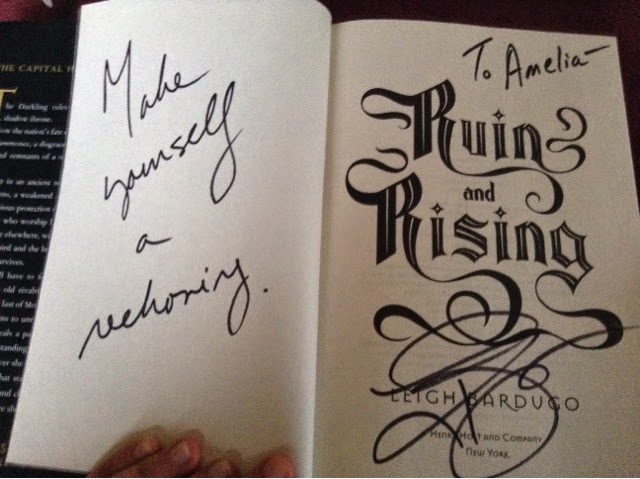 THE CAPITAL
The Darkling rules
shadow throne.
the nation's fate
a disgrac
nd remnants of a
in an ancient
a weakened
protection
who worship
elsewhere,
and the
survives.
have to
old rivalri
last of
a
standing
she
that
and
she
Make
yourself
a
reckoning.
To Amelia–
Ruin
and
Rising
LEIGH BARDUGO
HENRY HOLT AND COMPANY
NEW YORK